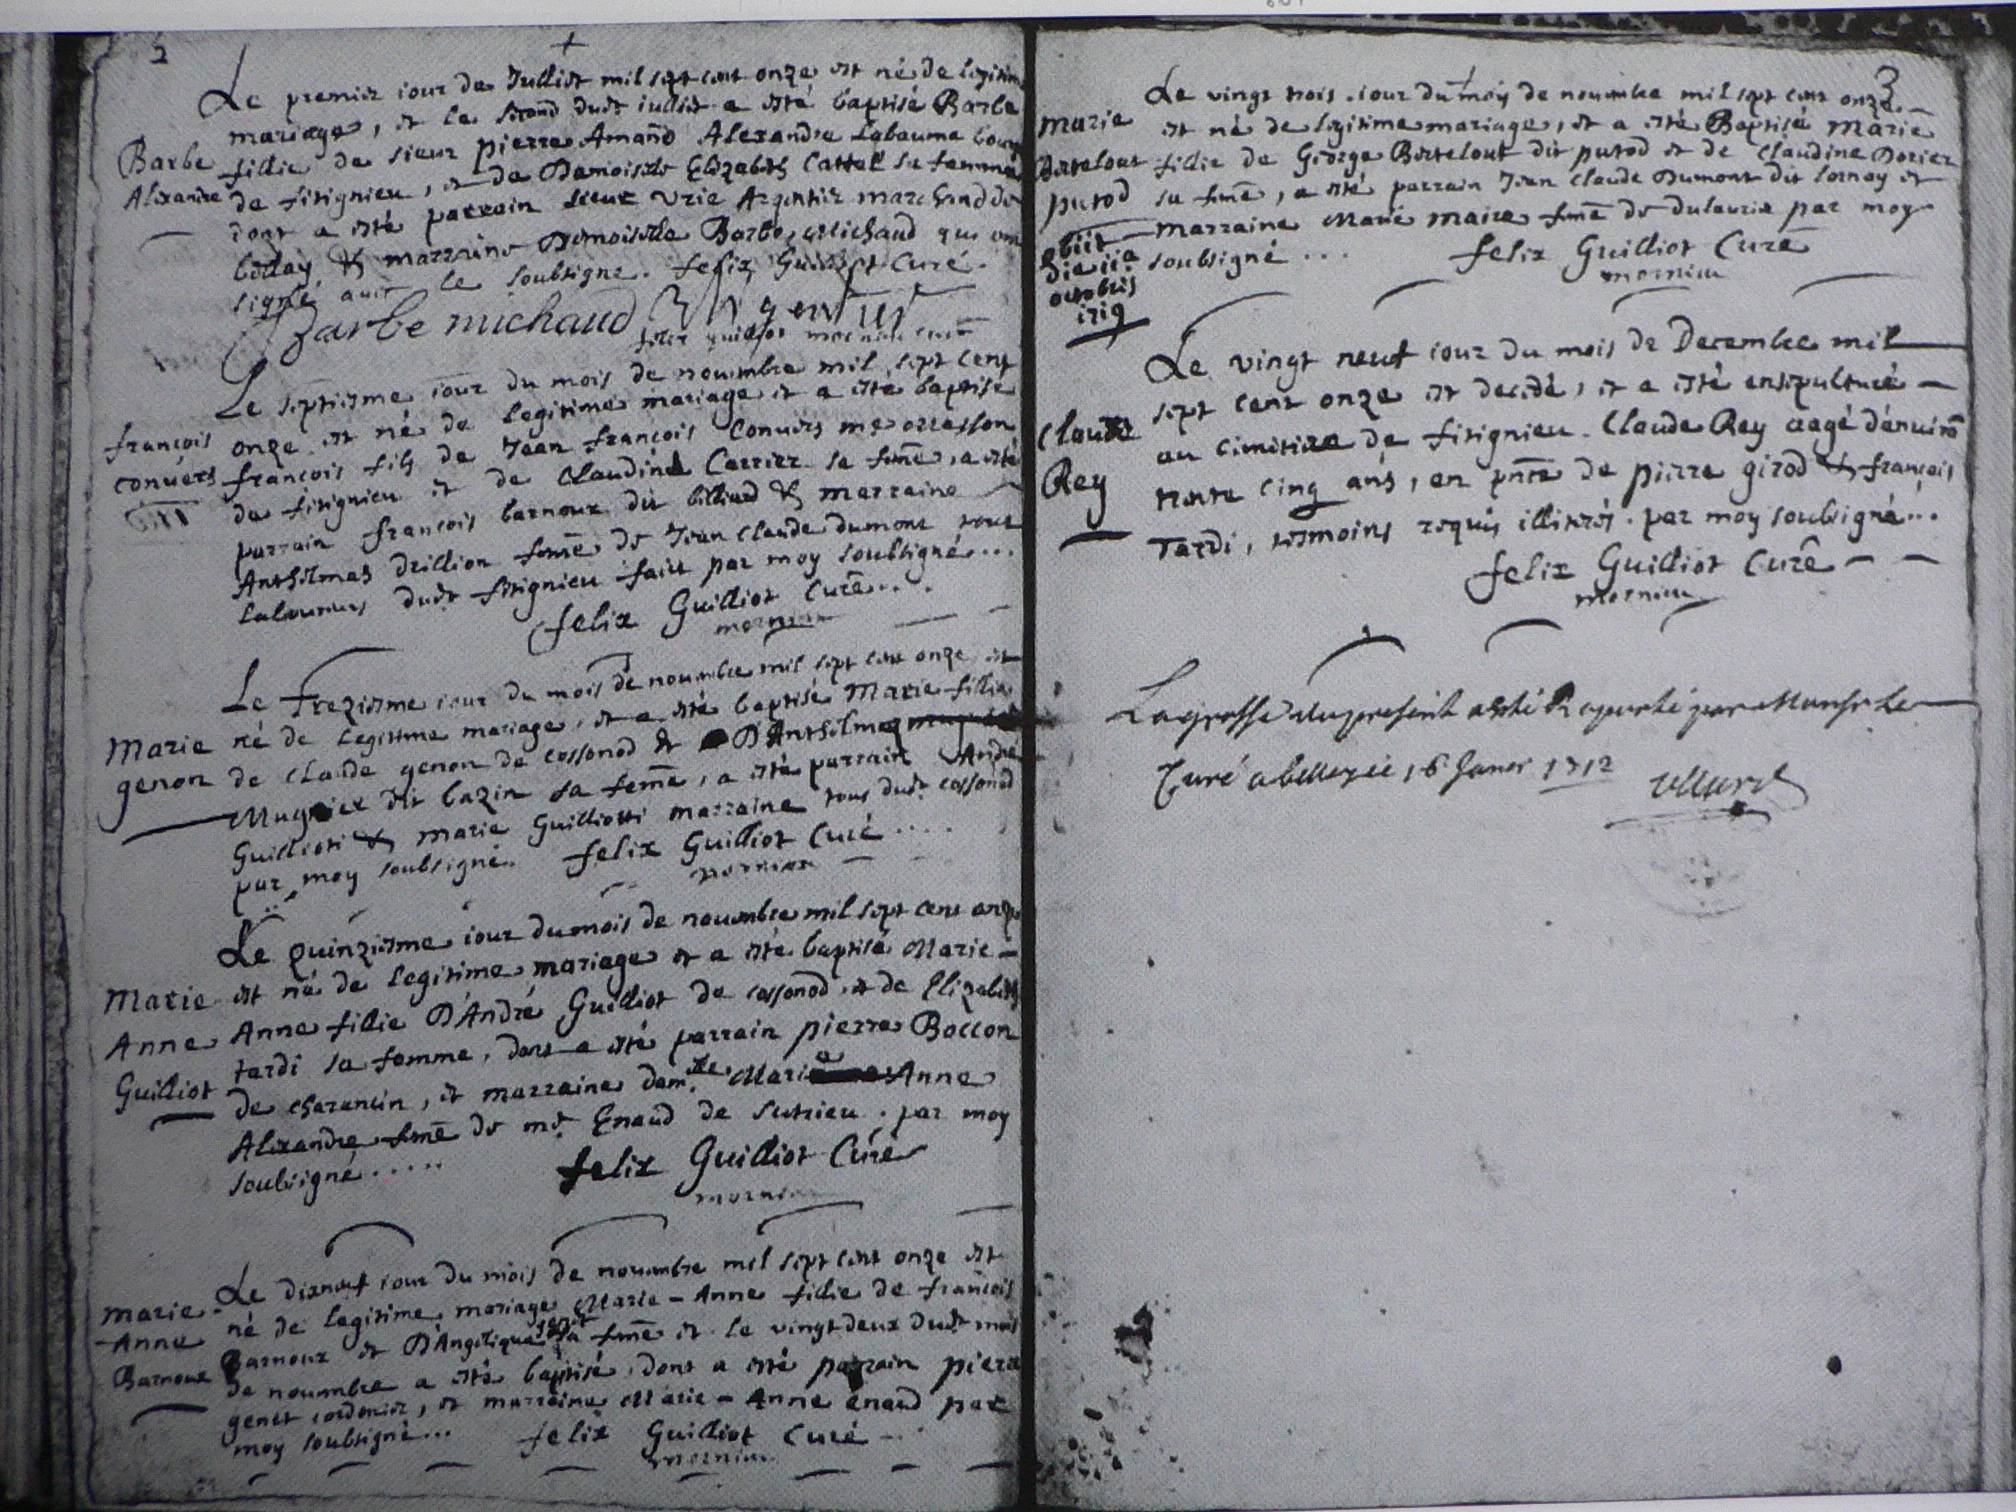 2
Le premier iour de Julliet mil sept cent onze est né de legitime
mariage, et le second dudt iulliet a esté baptisé Barbe
Barbe fillie de sieur pierre Amand Alexandre Labaume bourg
Alexandre de fitignieu, et de Damoiselle Elizabeth Cattel sa femme
dont a esté parrain sieur Vrie Argentier marchand de
bollay & marraine Demoiselle Barbe Michaud qui ont
signé avec le soubsigné. felix Guilliot Curé.
Barbe michaud Argentier
felix guilliot mornieu curé
Le septiesme iour du mois de nouembre mil sept cent
françois onze est né de legitime mariage et a esté baptisé
conuers françois fils de Jean françois Conuers me
de fitignieu et de Claudine Carrier sa feme, a esté
parrain françois barnoux dit billiard & marraine
Anthelmaz Drillion feme de Jean Claude dumont tous
laboureurs dudt fitignieu fait par moy soubsigné...
felix Guilliot Curé....
mornieu
Le Treziesme iour du mois de nouembre mil sept cent onze est
Marie né de legitime mariage, et a esté baptisé Marie fillie
genon de Claude genon de cossonod & D'Anthelmaz
Mugnier dit bazin sa feme, a esté parrain André
Guillioti & marie Guilliotti marraine tous dudt cossonod
par moy soubsigné. felix Guilliot Curé....
mornieu
Le quinziesme iour du mois de nouembre mil sept cent onze
Marie est né de legitime mariage et a esté baptisé Marie -
Anne Anne fillie D'André Guilliot de cossonod et de Elizabeth
Guilliot tardi sa femme, dont a esté parrain pierre Boccon
de charancin, et marraine damlle Marie Anne
Alexandre feme de mr Enaud de Sutrieu. par moy
soubsigné..... felix Guilliot Curé
mornieu
Le dixneuf iour du mois de nouembre mil sept cent onze est
marie - né de legitime mariage Marie - Anne fillie de françois
Anne Barnoux et D'Angelique genet sa feme et le vingt deux dudt mois
Barnoux de nouembre a esté baptisé, dont a esté parrain pierre
genet cordonier, et marraine Marie - Anne enaud par
moy soubsigné... felix Guilliot Curé
mornieu
3
Le vingt trois iour du moy de nouembre mil sept cent onze
marie est né de legitime mariage, et a esté Baptisé Marie
Bertelout fillie de George Bertelout dit putod et de Claudine Dorier
putod sa feme, a esté parrain Jean Claude Dumont dit Lornay et
marraine Marie maire feme de dulaurie par moy
obiit soubsigné... felix Guilliot Curé
die 11a mornieu
octobris
1719
Le vingt neuf iour du mois de Decembre mil
sept cent onze est decidé, et a esté ensipulturé
Claude au cimitire de fitignieu. Claude Rey aagé d'enuiron
Rey trente cinq ans, en pnce de pierre girod & françois
Tardi, tesmoins requis illiterés. par moy soubsigné...
felix Guilliot Curé
mornieu
La grosse du present a esté Raportée par Monsr Le
Curé a bellezee 16 Janvr 1712